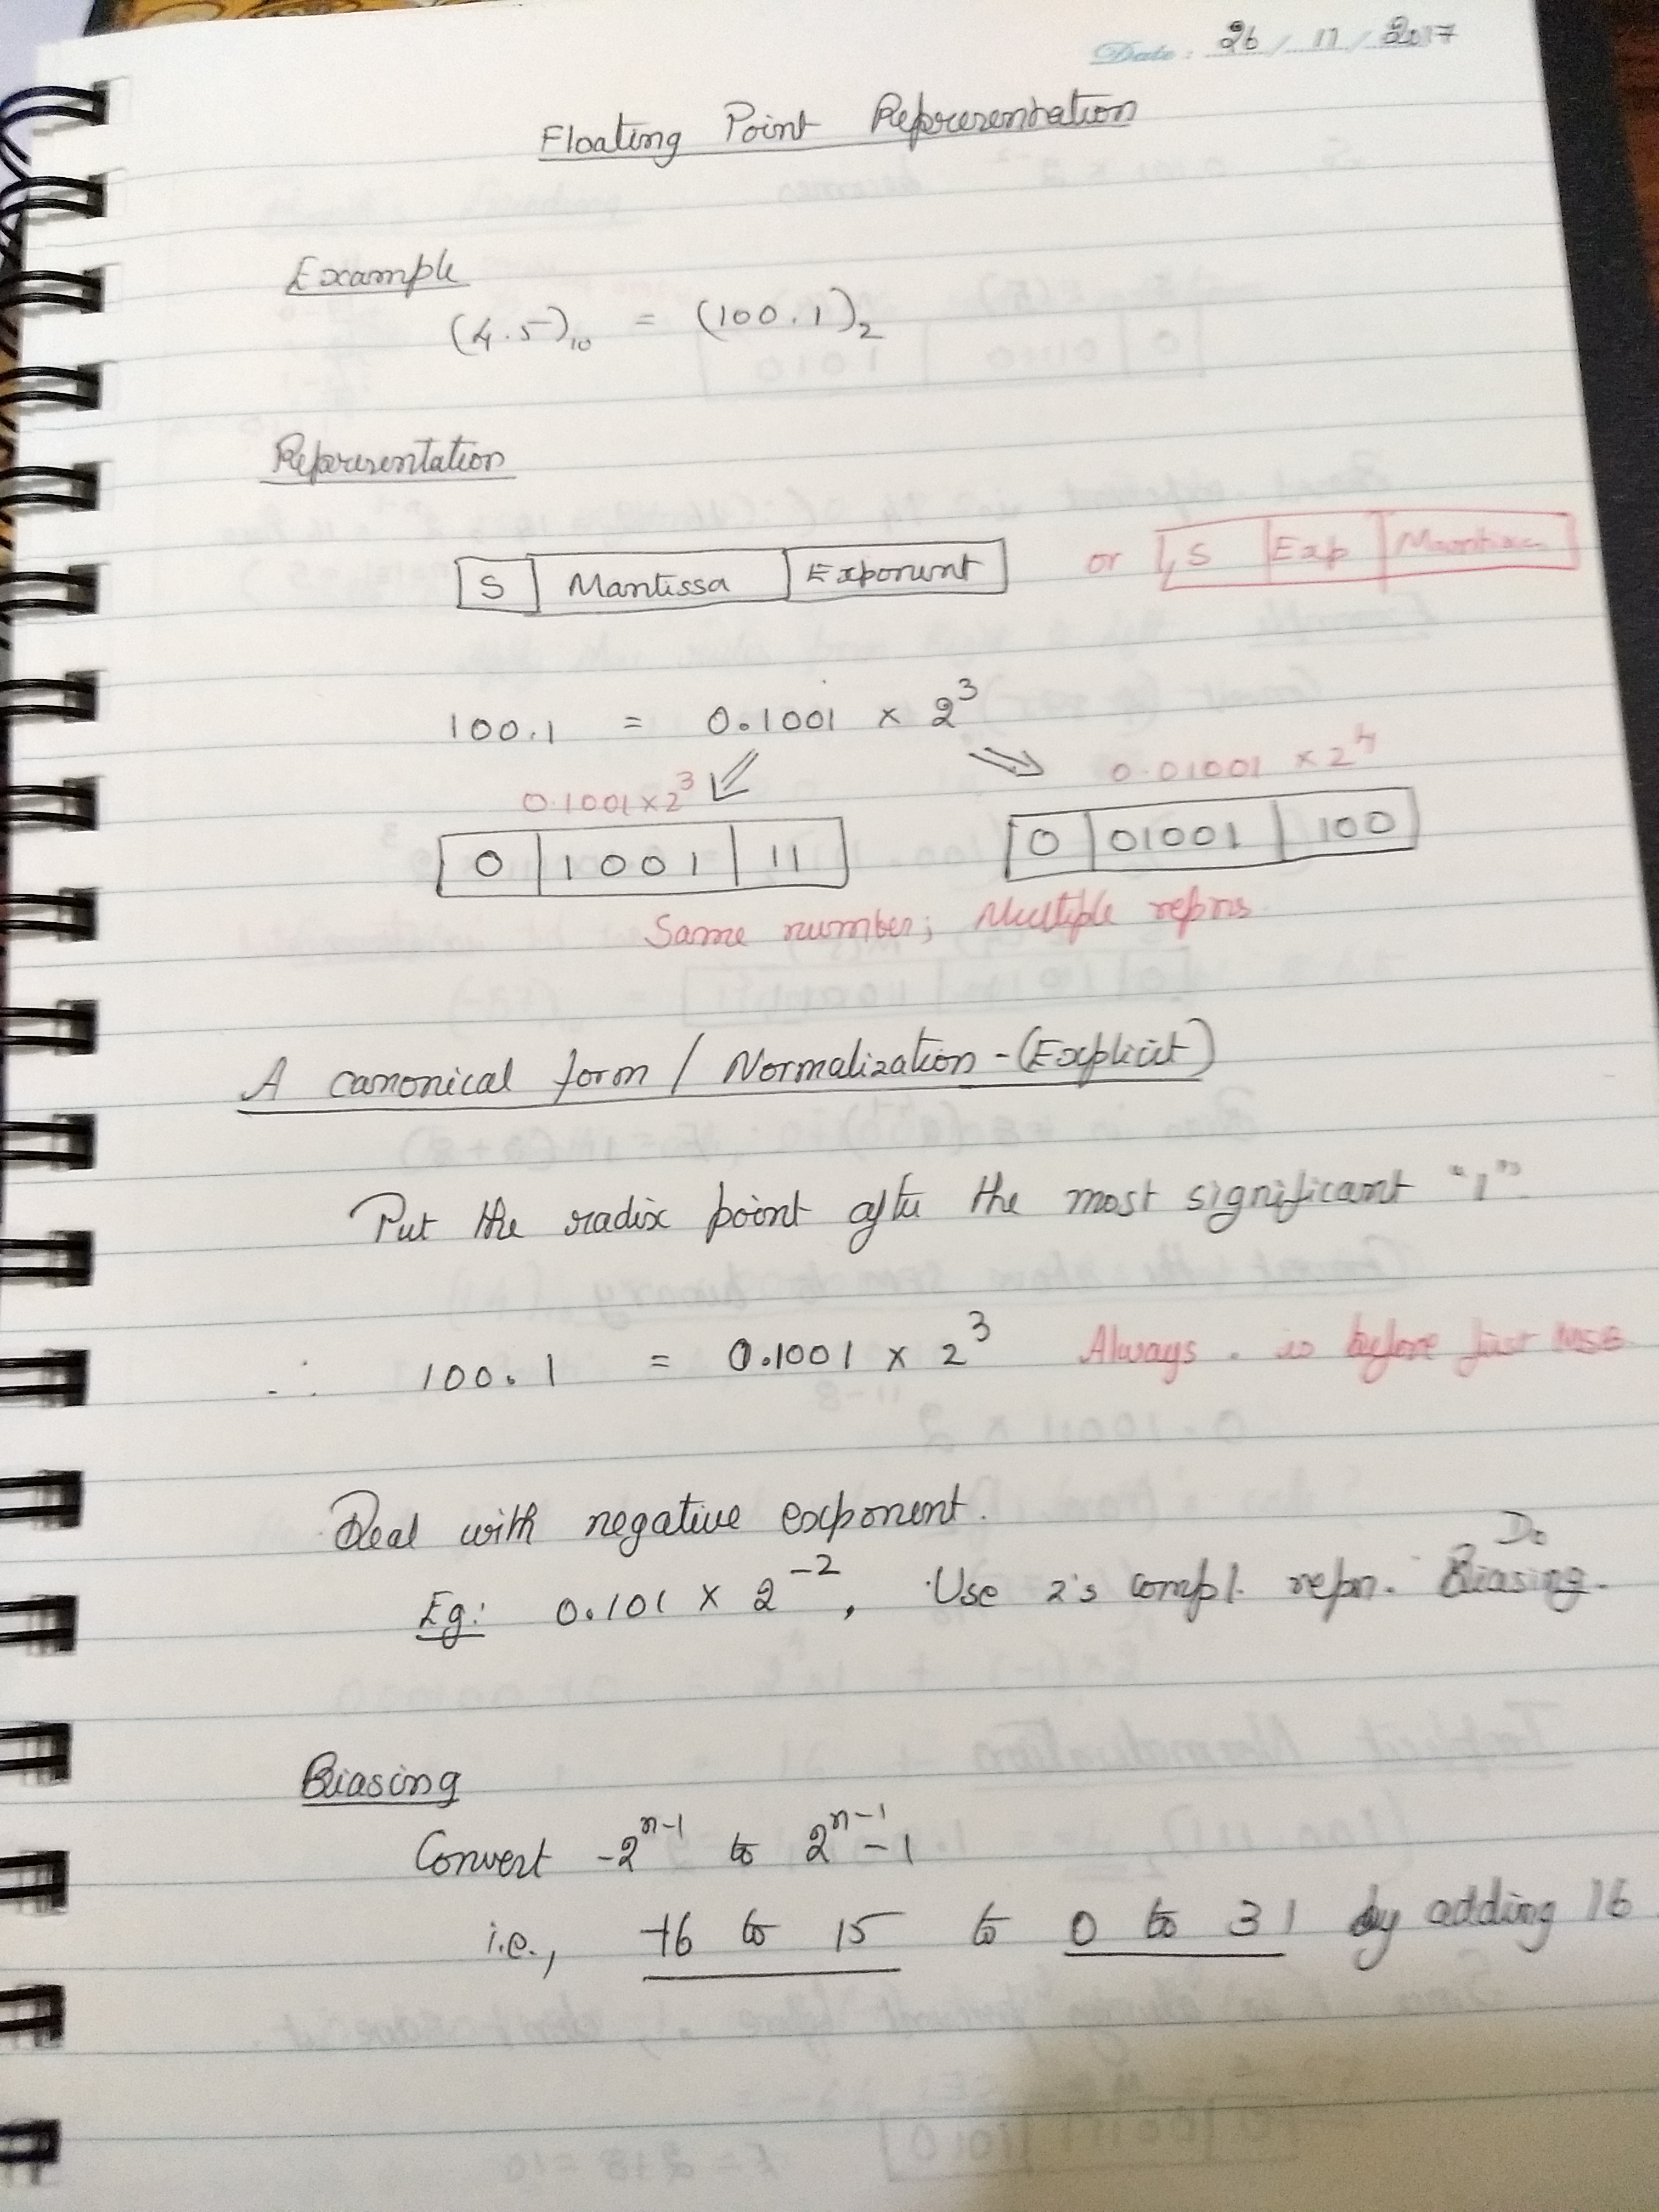 Date : 26 / 11 / 2017
Floating Point Representation
Example
(4.5)₁₀ = (100.1)₂
Representation
S | Mantissa | Exponent or S | Exp | Mantissa
100.1 = 0.1001 × 2³
0.1001 × 2³ 0.01001 × 2⁴
0 | 1001 | 11 0 | 01001 | 100
Same number; Multiple repns
A canonical form / Normalization - (Explicit)
Put the radix point after the most significant "1".
∴ 100.1 = 0.1001 × 2³ Always . is before first MSB
Deal with negative exponent.
Do
Eg: 0.101 × 2⁻², Use 2's compl. repn. Biasing.
Biasing
Convert -2ⁿ⁻¹ to 2ⁿ⁻¹-1
i.e., -16 to 15 to 0 to 31 by adding 16